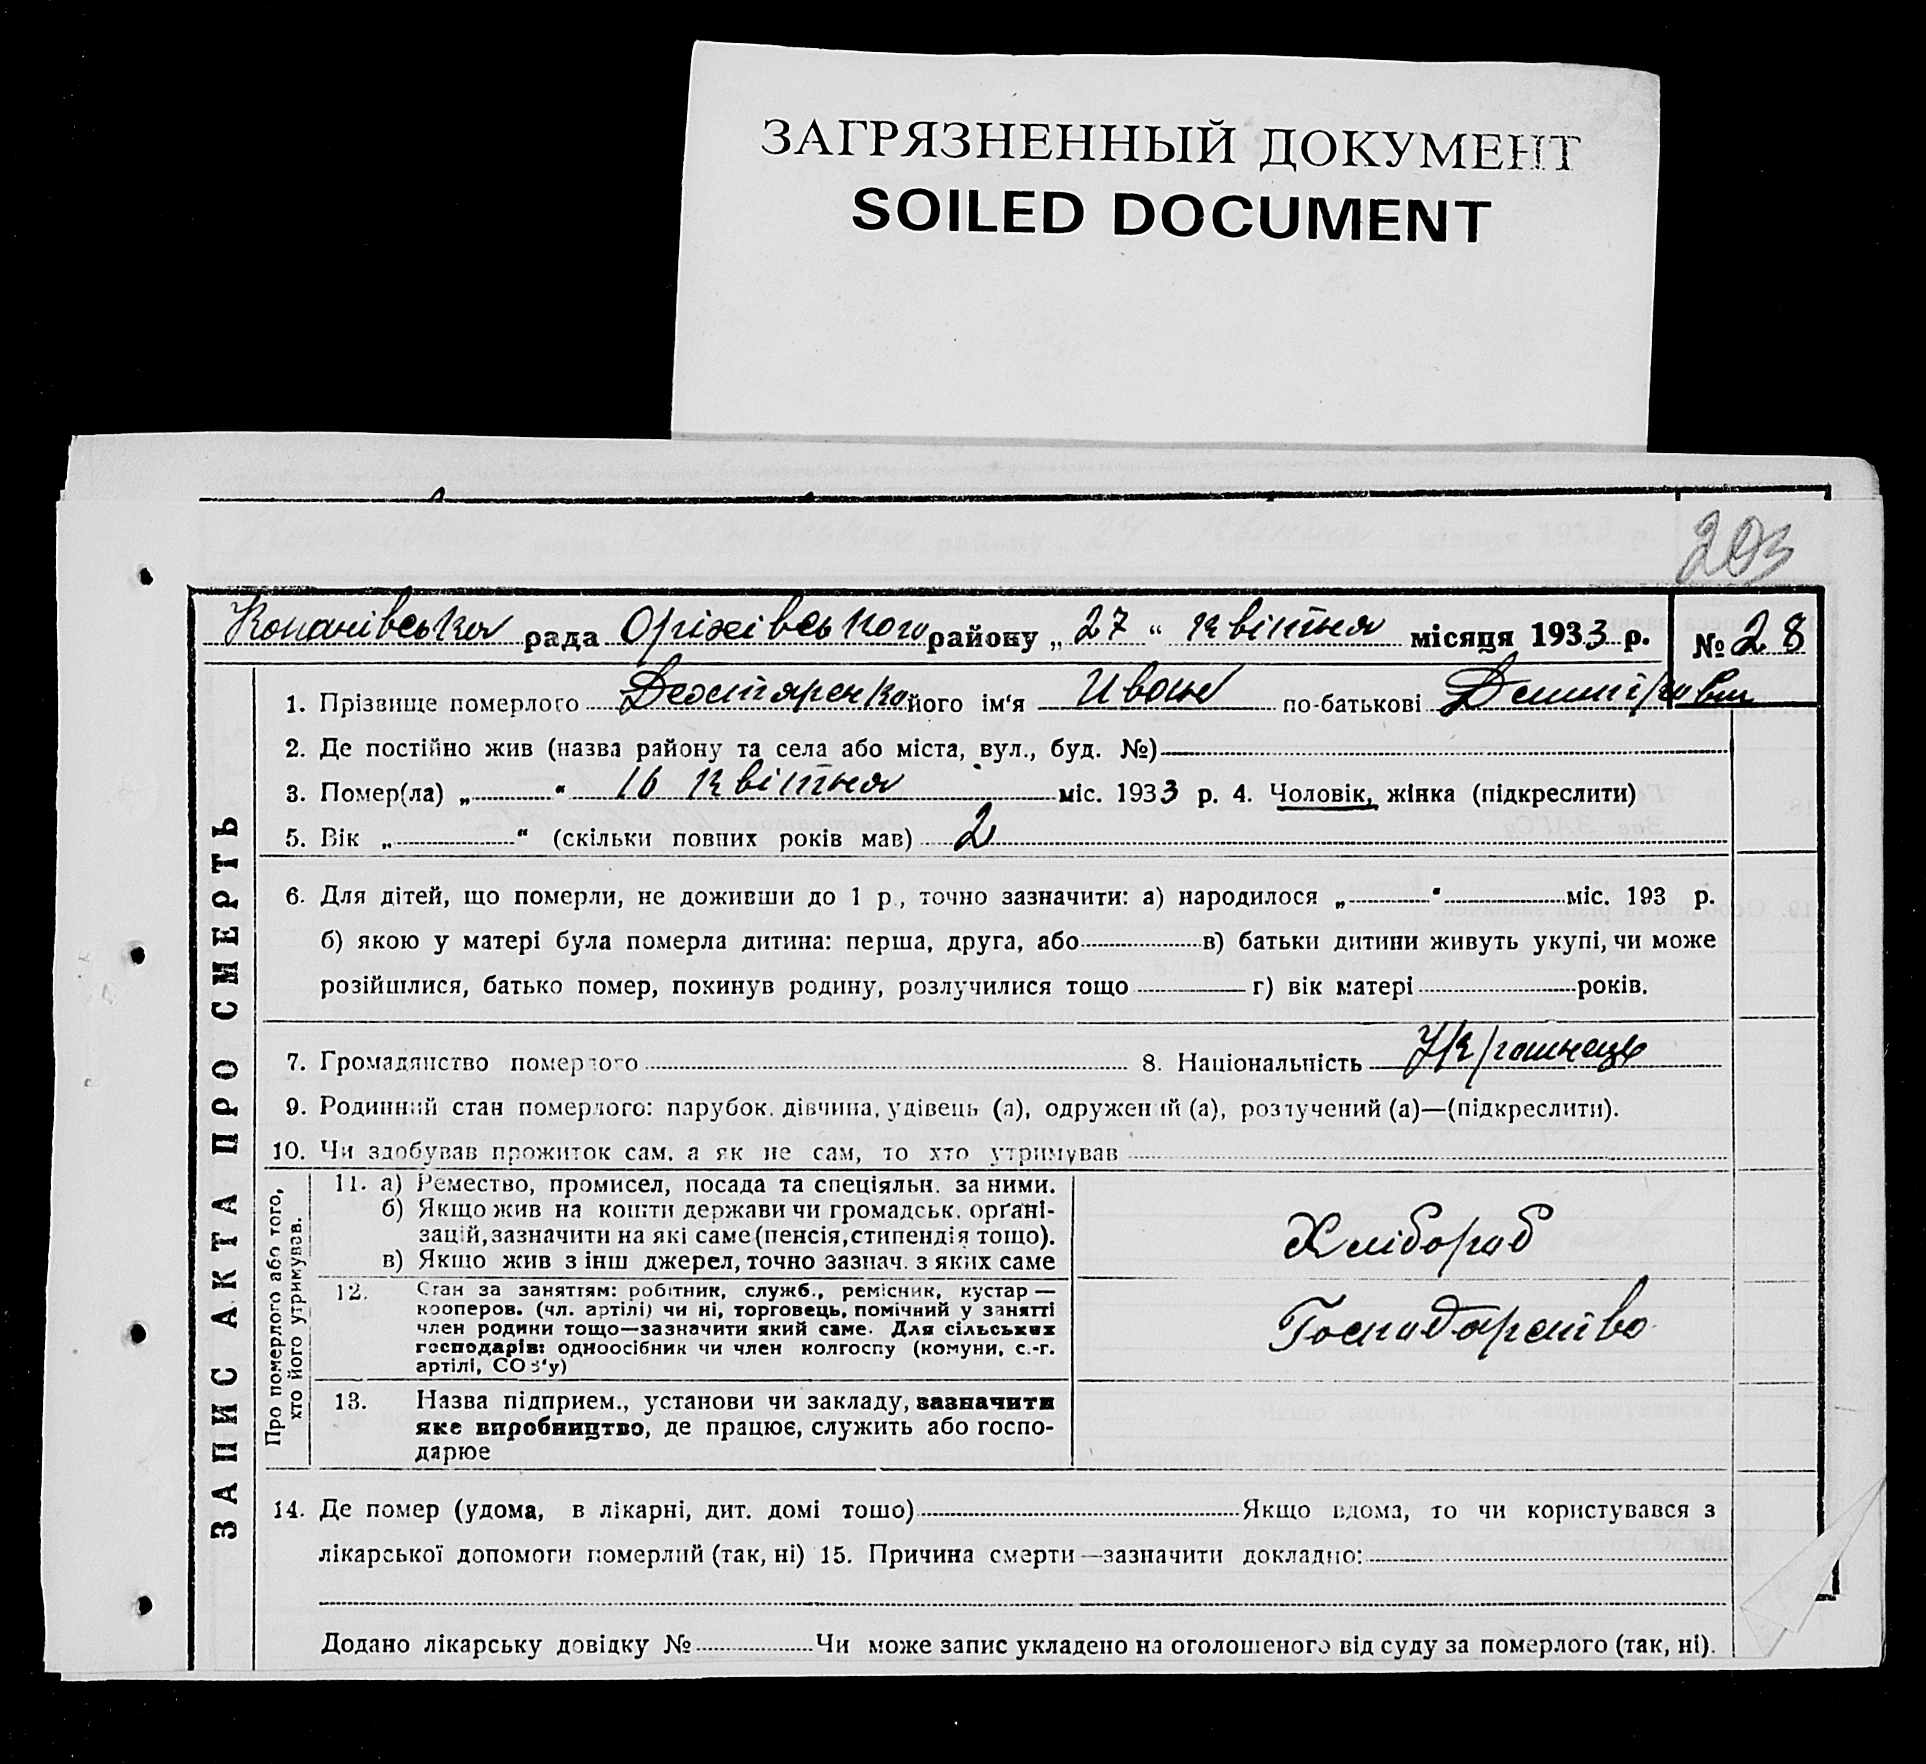 ЗАГРЯЗНЕННЫЙ ДОКУМЕНТ
SOILED DOCUMENT
203
Копанівська рада Оріхівського району „27“ квітня місяця 1933 р. № 28
1. Прізвище померлого Дехтяренко його ім'я Иван по-батькові
2. Де постійно жив (назва району та села або міста, вул., буд. №)
3. Помер(ла) „ “ 16 квітня міс. 1933 р. 4. Чоловік, жінка (підкреслити)
5. Вік „ “ (скільки повних років мав) 2
6. Для дітей, що померли, не доживши до 1 р., точно зазначити: а) народилося „ “ міс. 193 р.
б) якою у матері була померла дитина: перша, друга, або в) батьки дитини живуть укупі, чи може
розійшлися, батько помер, покинув родину, розлучилися тощо г) вік матері років.
7. Громадянство померлого 8. Національність Українець
9. Родинний стан померлого: парубок, дівчина, удівець (а), одружений (а), розлучений (а)—(підкреслити).
10. Чи здобував прожиток сам, а як не сам, то хто утримував
ЗАПИС АКТА ПРО СМЕРТЬ
Про померлого або того,
хто його утримував.
11. а) Ремество, промисел, посада та спеціяльн. за ними.
б) Якщо жив на кошти держави чи громадськ. орґані-
зацій, зазначити на які саме (пенсія, стипендія тощо).
в) Якщо жив з інш джерел, точно зазнач. з яких саме
Хлібороб
12. Стан за заняттям: робітник, служб., ремісник, кустар —
кооперов. (чл. артілі) чи ні, торговець, помічний у занятті
член родини тощо—зазначити який саме. Для сільських
господарів: одноосібник чи член колгоспу (комуни, с.-г.
артілі, СОЗ'у)
Господарство
13. Назва підприєм., установи чи закладу, зазначити
яке виробництво, де працює, служить або госпо-
дарює
14. Де помер (удома, в лікарні, дит. домі тощо) Якщо вдома, то чи користувався з
лікарської допомоги померлий (так, ні) 15. Причина смерти—зазначити докладно:
Додано лікарську довідку № Чи може запис укладено на оголошеного від суду за померлого (так, ні).